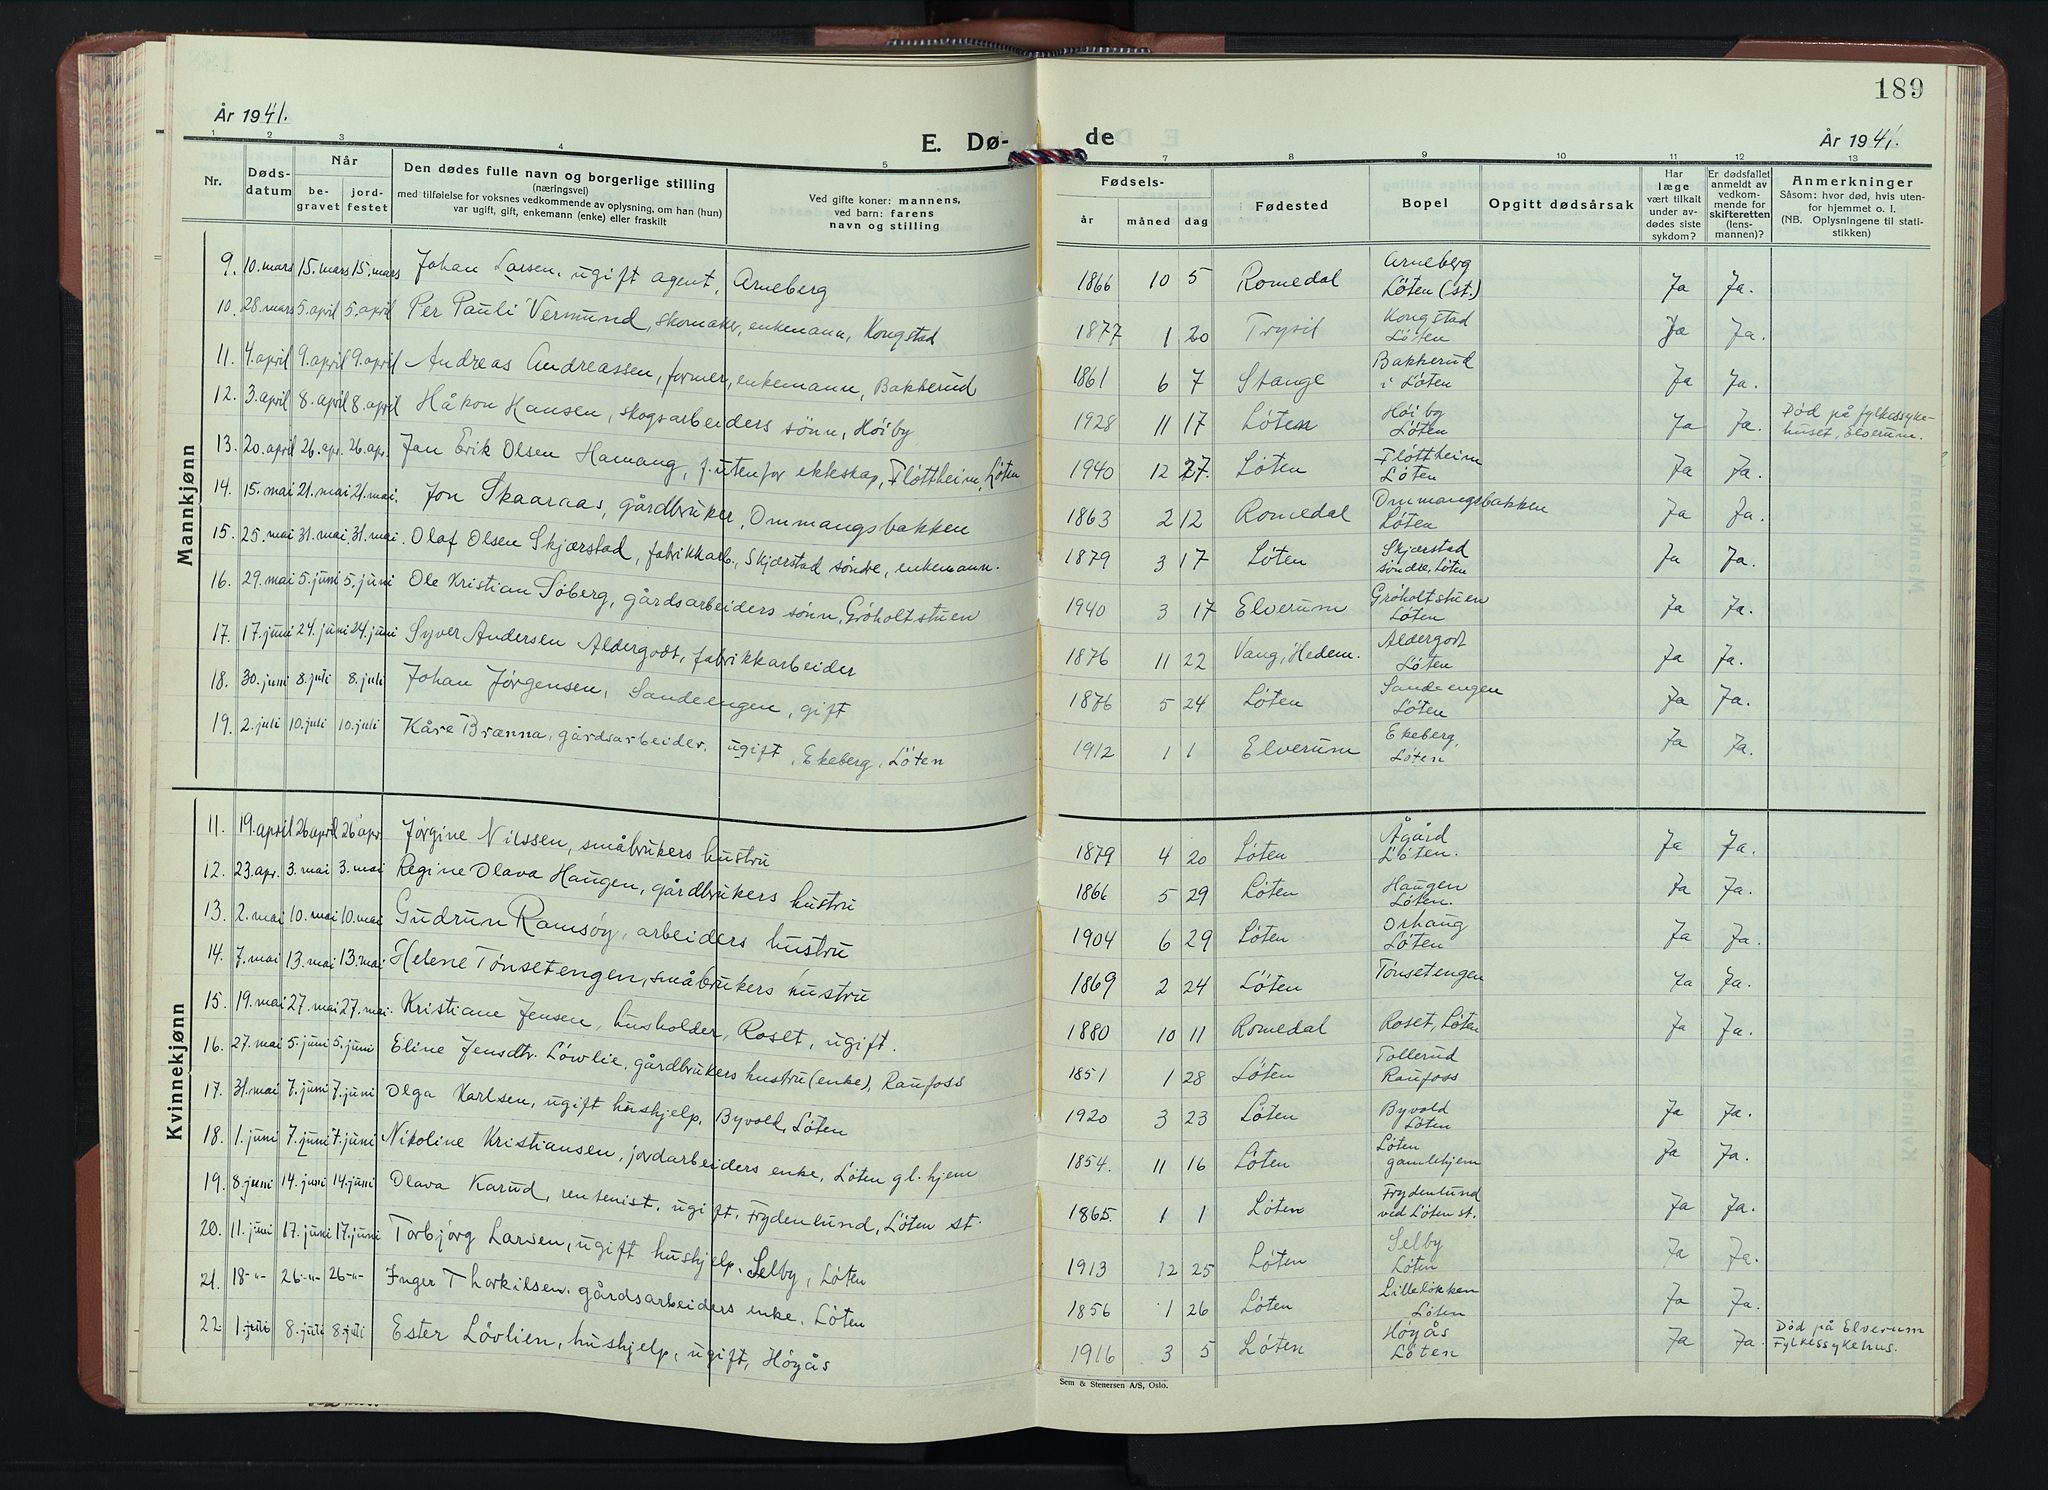 189
År 1941.
E. Dø-
de
År 1941.
1 2 3 4 5 7 8 9 10 11 12 13
Nr.
Døds-
datum
Når
be-
gravet
jord-
festet
Den dødes fulle navn og borgerlige stilling
(næringsvei)
med tilføielse for voksnes vedkommende av oplysning, om han (hun)
var ugift, gift, enkemann (enke) eller fraskilt
Ved gifte koner: mannens,
ved barn: farens
navn og stilling
Fødsels-
år måned dag
Fødested
Bopel
Opgitt dødsårsak
Har
læge
vært tilkalt
under av-
dødes siste
sykdom?
Er dødsfallet
anmeldt av
vedkom-
mende for
skifteretten
(lens-
mannen)?
Anmerkninger
Såsom: hvor død, hvis uten-
for hjemmet o. l.
(NB. Oplysningene til stati-
stikken)
Mannkjønn
9. 10. mars 15. mars 15. mars Johan Larsen, ugift agent, Arneberg 1866 10 5 Romedal Arneberg Løten (st.) Ja Ja.
10. 28. mars 5. april 5. april Per Pauli Vermund, skomaker, enkemann, Kongstad 1877 1 20 Trysil Kongstad Løten Ja Ja.
11. 4. april 9. april 9. april Andreas Andreassen, former, enkemann, Bakkerud 1861 6 7 Stange Bakkerud i Løten Ja Ja.
12. 3. april 8. april 8. april Håkon Hansen, skogsarbeiders sønn, Høiby 1928 11 17 Løten Høiby Løten Ja Ja. Død på fylkessyke-
huset, Elverum.
13. 20. april 26. ap. 26. ap. Jan Erik Olsen Hamang, f. utenfor ekteskap, Fløttheim, Løten 1940 12 27. Løten Fløttheim Løten Ja Ja.
14. 15. mai 21. mai 21. mai. Jon Skaaraas, gårdbruker, Ommangsbakken 1863 2 12 Romedal Ommangsbakken Løten Ja Ja.
15. 25. mai 31. mai 31. mai. Olaf Olsen Skjærstad, fabrikkarb., Skjærstad søndre, enkemann. 1879 3 17 Løten Skjærstad søndre, Løten Ja Ja.
16. 29. mai 5. juni 5. juni Ole Kristian Søberg, gårdsarbeiders sønn, Grøholtstuen 1940 3 17 Elverum Grøholtstuen Løten Ja Ja.
17. 17. juni 24. juni 24. juni Syver Andersen Aldergodt, fabrikkarbeider 1876 11 22 Vang, Hedem. Aldergodt Løten Ja Ja.
18. 30. juni 8. juli 8. juli Johan Jørgensen, Sandeengen, gift 1876 5 24 Løten Sandeengen Løten Ja Ja.
19. 2. juli 10. juli 10. juli Kåre Brænna, gårdsarbeider, ugift, Ekeberg, Løten 1912 1 1 Elverum Ekeberg, Løten Ja Ja.
Kvinnekjønn
11. 19. april 26 april 26 apr. Jørgine Nilssen, småbrukers hustru 1879 4 20 Løten Ågård Løten. Ja Ja.
12. 23. ap. 3. mai 3. mai Regine Olava Haugen, gårdbrukers hustru 1866 5 29 Løten Haugen Løten. Ja Ja.
13. 2. mai 10. mai 10. mai Gudrun Ramsøy, arbeiders hustru 1904 6 29 Løten Orhaug Løten Ja Ja.
14. 7. mai 13. mai 13. mai Helene Tønsetengen, småbrukers hustru 1869 2 24 Løten Tønsetengen Ja Ja.
15. 19. mai 27. mai 27. mai. Kristiane Jensen, husholder, Roset, ugift. 1880 10 11 Romedal Roset, Løten Ja Ja.
16. 27. mai 5. juni 5. juni Eline Jensdtr. Løvlie, gårdbrukers hustru (enke), Raufoss 1851 1 28 Løten Tollerud Raufoss
17. 31. mai 7. juni 7. juni Olga Karlsen, ugift hushjelp, Byvold, Løten 1920 3 23 Løten Byvold Løten Ja Ja.
18. 1. juni 7. juni 7. juni Nikoline Kristiansen, jordarbeiders enke, Løten gl. hjem 1854. 11 16 Løten Løten gamlehjem Ja Ja.
19. 8. juni 14. juni 14. juni Olava Karud, rensenist, ugift, Frydenlund, Løten st. 1865. 1 1 Løten Frydenlund ved Løten st. Ja Ja.
20. 11. juni 17. juni 17. juni Torbjørg Larsen, ugift hushjelp, Selby, Løten 1913 12 25 Løten Selby Løten Ja Ja.
21. 18-"- 26-"- 26-"- Inger Thorkilsen, gårdsarbeiders enke, Løten 1856 1 26 Løten Lilleløkken Løten Ja Ja.
22 1. juli 8. juli 8. juli Ester Løvlien, hushjelp, ugift, Høyås 1916 3 5 Løten Høyås Løten Ja Ja. Død på Elverum
Fylkessykehus.
Sem & Stenersen A/S, Oslo.